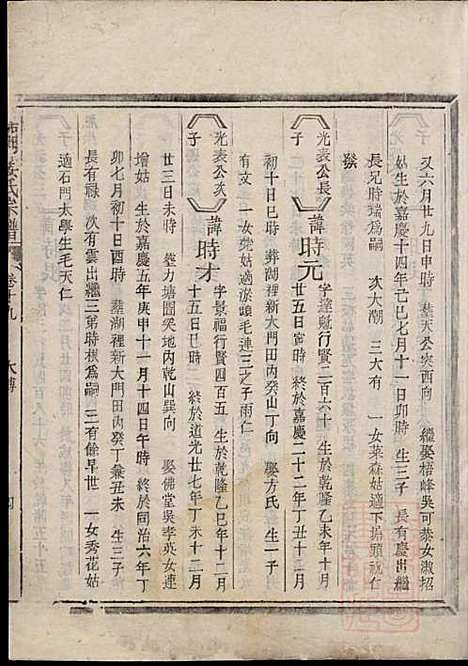 又六月廿九日申時 葬天公突酉向 繼娶梧峰吳可恭女淑招
姑 生於嘉慶十四年己巳七月十一日卯時 生三子 長有慶出繼
長兄時端爲嗣 次大潮 三大有 一女菜蔴姑適下抬頭祝仁
光表公長子 諱時元 字達魁行賢二百六十 生於乾隆 年未年十月
廿五日寅時 終於嘉慶二十二年丁丑十二月
初十日巳時 葬湖裡新大門田丙癸山丁向 娶方氏 生一子
有文 一女 姑適淤頭毛連三之子雨仁
光表公次子 諱時才 字景福行賢四百五 生於乾隆乙巳年十二月
十五日巳時 終於道光廿七年丁未十二月
廿三日未時 葬力塘圖 地內乾山巽向 娶佛堂吳李英女連
增姑 生於嘉慶五年庚申十一月十四日午時 終於同治六年丁
卯七月初十日酉時 葬湖裡新大門田丙癸丁兼丑未 生三子
長有祿 次有雲出繼三弟時根爲嗣 三有餘早世 一女秀花姑
適石門太學生毛天仁
氏宗譜 卷十九